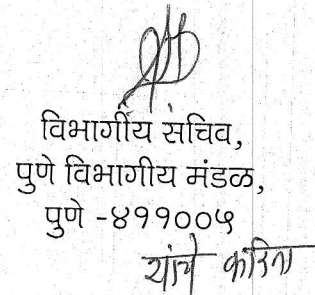 विभागीय सचिव,
पुणे विभागीय मंडळ,
पुणे -४११००५
यांचे करिता